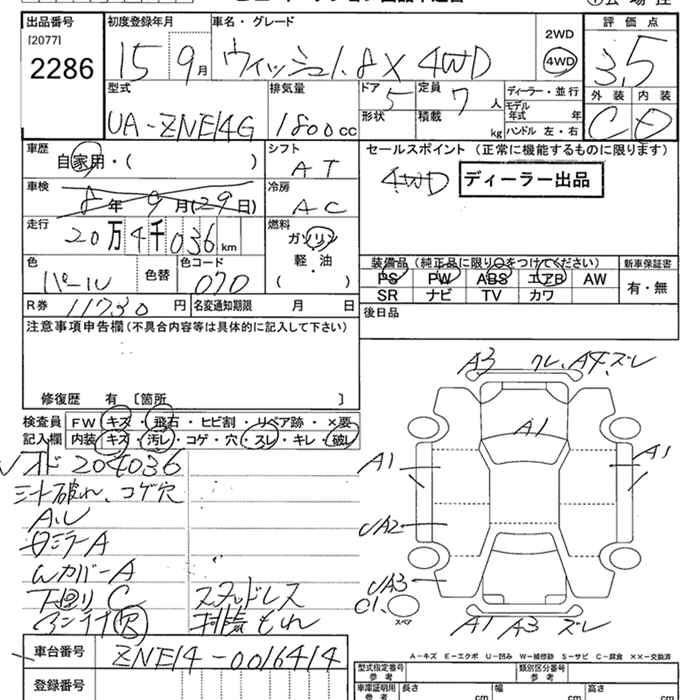 出品番号
[2077]
2286
初度登録年月
15 9月
車名・グレード
ウィッシュ1.8X 4WD
2WD
4WD
評価点
3.5
外装 内装
C D
型式
UA-ZNE14G
排気量
1800cc
ドア
5
定員
7人
形状
積載
kg
ディーラー・並行
モデル年式 年
ハンドル 左・右
車歴
自家用・( )
シフト
AT
セールスポイント (正常に機能するものに限ります)
4WD ディーラー出品
車検
8年 9月(29日)
冷房
AC
走行
20万4千036km
燃料
ガソリン
軽・油
( )
色
パール
色替
色コード
070
装備品 (純正品に限り○をつけてください)
PS PW ABS エアB AW
SR ナビ TV カワ
新車保証書
有・無
R券 11730円
名変通知期限 月 日
後日品
注意事項申告欄 (不具合内容等は具体的に記入して下さい)
修復歴 有 〔箇所 〕
検査員
記入欄
FW キズ・飛石・ヒビ割・リペア跡・×要
内装 キズ・汚レ・コゲ・穴・スレ・キレ・破レ
204036
シート破れ、コゲ穴
ミラーA
WカバーA
下回りC
スタッドレス
排気もれ
A3 クレ、A4、ズレ
A1
A1
A1
UA2
UA3
スペア
A1 A3 ズレ
A-キズ E-エクボ U-凹み W-補修跡 S-サビ C-腐食 ××-交換済
車台番号
ZNE14-0016414
登録番号
型式指定番号
参考
類別区分番号
参考
車庫証明用
参考
長さ
cm
幅
cm
高さ
cm